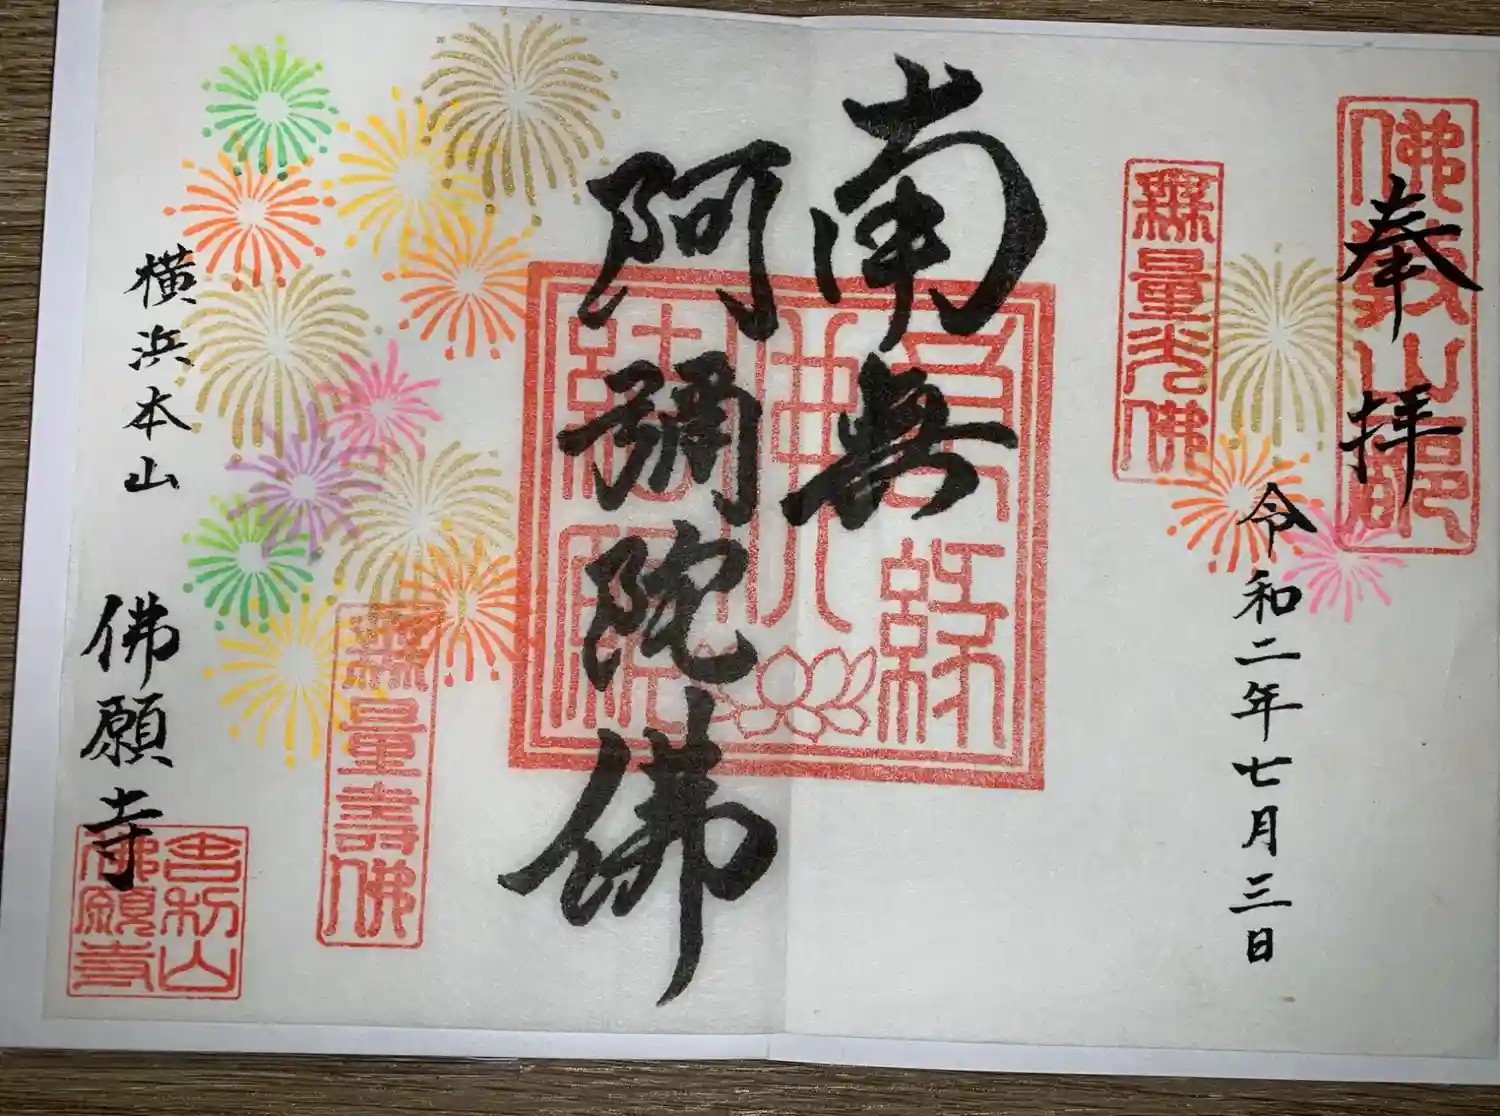 奉拝
令和二年七月三日
無量光佛
南無
阿彌陀佛
無量壽佛
横浜本山
佛願寺
舎利山
佛願寺